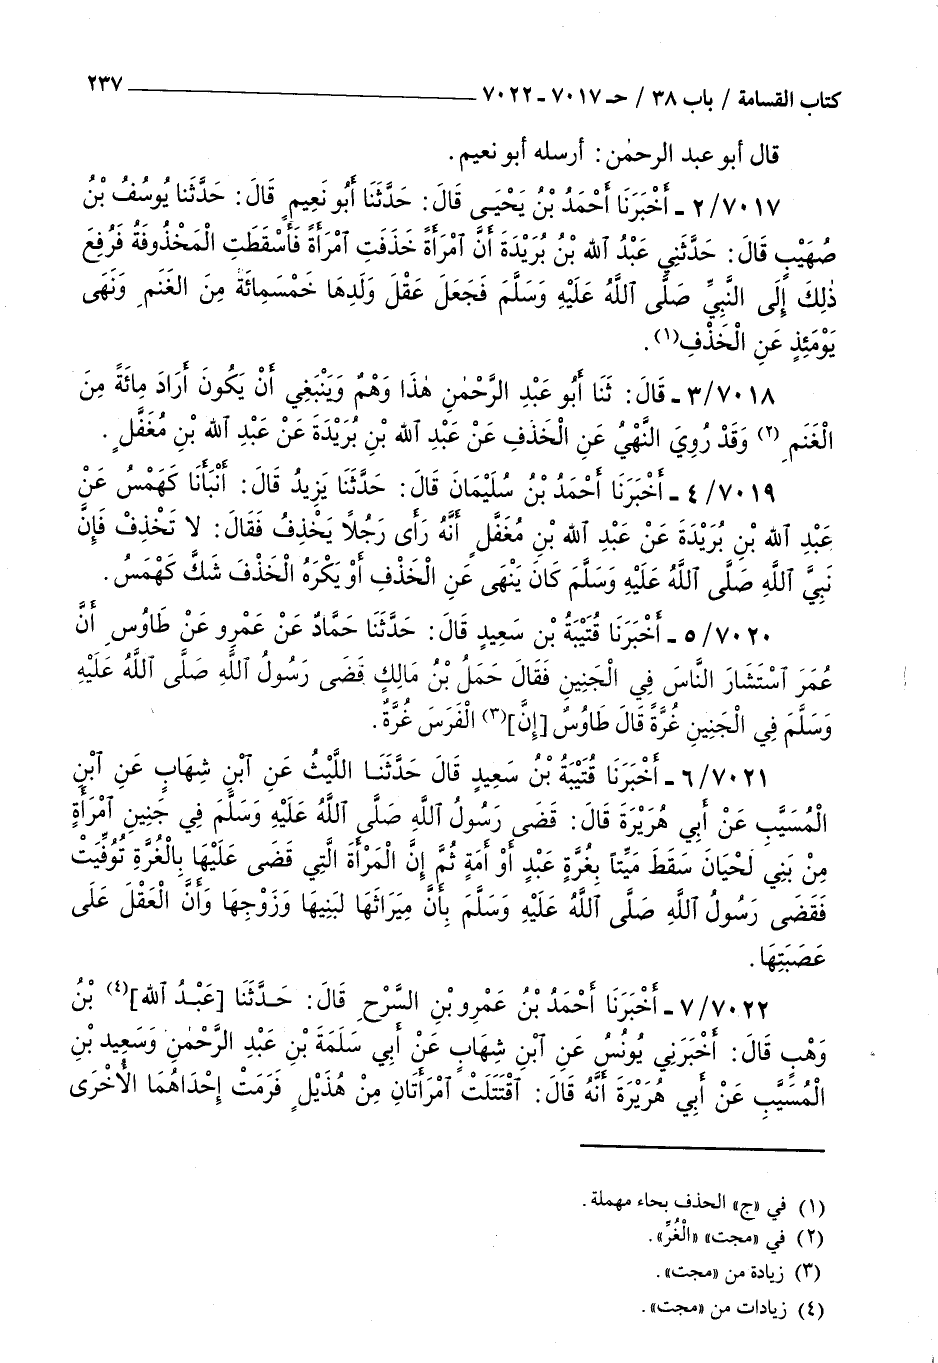 كتاب القسامة / باب ٣٨ / حـ ٧٠١٧ ـ ٧٠٢٢ ٢٣٧
قال أبو عبد الرحمٰن : أرسله أبو نعيم .
٢/٧٠١٧ ـ أَخْبَرَنَا أَحْمَدُ بْنُ يَحْيَـى قَالَ : حَدَّثَنَا أَبُو نَعِيمٍ قَالَ : حَدَّثَنا يُوسُفُ بْنُ
صُهَيْبٍ قَالَ : حَدَّثَنِي عَبْدُ ٱلله بْنُ بُرَيْدَةَ أَنَّ ٱمْرَأَةً خَذَفَتِ ٱمْرَأَةً فَأَسْقَطَتِ الْمَخْذُوفَةُ فَرُفِعَ
ذٰلِكَ إِلَى النَّبِيِّ صَلَّى ٱللَّهُ عَلَيْهِ وَسَلَّمَ فَجَعَلَ عَقْلَ وَلَدِهَا خَمْسَمِائَةً مِنَ الْغَنَمِ وَنَهَى
يَوْمَئِذٍ عَنِ الْخَذْفِ(١) .
٣/٧٠١٨ ـ قَالَ : ثَنَا أَبُو عَبْدِ الرَّحْمٰنِ هٰذَا وَهْمٌ وَيَنْبَغِي أَنْ يَكُونَ أَرَادَ مِائَةً مِنَ
الْغَنَمِ (٢) وَقَدْ رُوِيَ النَّهْيُ عَنِ الْخَذْفِ عَنْ عَبْدِ ٱلله بْنِ بُرَيْدَةَ عَنْ عَبْدِ ٱلله بْنِ مُغَفَّلٍ .
٤/٧٠١٩ ـ أَخْبَرَنَا أَحْمَدُ بْنُ سُلَيْمَانَ قَالَ : حَدَّثَنَا يَزِيدُ قَالَ : أَنْبَأَنَا كَهْمَسُ عَنْ
عَبْدِ ٱلله بْنِ بُرَيْدَةَ عَنْ عَبْدِ ٱلله بْنِ مُغَفَّلٍ أَنَّهُ رَأَى رَجُلًا يَخْذِفُ فَقَالَ : لا تَخْذِفْ فَإِنَّ
نَبِيَّ ٱللَّهِ صَلَّى ٱللَّهُ عَلَيْهِ وَسَلَّمَ كَانَ يَنْهَى عَنِ الْخَذْفِ أَوْ يَكْرَهُ الْخَذْفَ شَكَّ كَهْمَسُ .
٥/٧٠٢٠ ـ أَخْبَرَنَا قُتَيْبَةُ بْن سَعِيدٍ قَالَ : حَدَّثَنَا حَمَّادٌ عَنْ عَمْرٍو عَنْ طَاوُسٍ أَنَّ
عُمَرَ ٱسْتَشَارَ النَّاسَ فِي الْجَنِينِ فَقَالَ حَمَلُ بْنُ مَالِكٍ قَضَى رَسُولُ ٱللَّهِ صَلَّى ٱللَّهُ عَلَيْهِ
وَسَلَّمَ فِي الْجَنِينِ غُرَّةً قَالَ طَاوُسُ [إِنَّ](٣) الْفَرَسَ غُرَّةٌ .
٦/٧٠٢١ ـ أَخْبَرَنَا قُتَيْبَةُ بْنُ سَعِيدٍ قَالَ حَدَّثَنَـا اللَّيْثُ عَنِ ٱبْنِ شِهَابٍ عَنِ ٱبْنِ
الْمُسَيَّبِ عَنْ أَبِي هُرَيْرَةَ قَالَ : قَضَى رَسُولُ ٱللَّهِ صَلَّى ٱللَّهُ عَلَيْهِ وَسَلَّمَ فِي جَنِينِ ٱمْرَأَةٍ
مِنْ بَنِي لَحْيَانَ سَقَطَ مَيِّتاً بِغُرَّةٍ عَبْدٍ أَوْ أَمَةٍ ثُمَّ إِنَّ الْمَرْأَةَ الَّتِي قَضَى عَلَيْهَا بِالْغُرَّةِ تُوُفِّيَتْ
فَقَضَى رَسُولُ ٱللَّهِ صَلَّى ٱللَّهُ عَلَيْهِ وَسَلَّمَ بِأَنَّ مِيرَاثَهَا لِبَنِيهَا وَزَوْجِهَا وَأَنَّ الْعَقْلَ عَلَى
عَصَبَتِهَا .
٧/٧٠٢٢ ـ أَخْبَرَنَا أَحْمَدُ بْنُ عَمْرِو بْنِ السَّرْحِ قَالَ : حَـدَّثَنَا [عَبْـدُ ٱلله](٤) بْنُ
وَهْبٍ قَالَ : أَخْبَرَنِي يُونُسُ عَنِ ٱبْنِ شِهَابٍ عَنْ أَبِي سَلَمَةَ بْنِ عَبْدِ الرَّحْمٰنِ وَسَعِيدِ بْنِ
الْمُسَيَّبِ عَنْ أَبِي هُرَيْرَةَ أَنَّهُ قَالَ : ٱقْتَتَلَتْ ٱمْرَأَتَانِ مِنْ هُذَيْلٍ فَرَمَتْ إِحْدَاهُمَا الْأُخْرَى
(١) في «ج» الحذف بحاء مهملة .
(٢) في «مجت» «الْغُرِّ» .
(٣) زيادة من «مجت» .
(٤) زيادات من «مجت» .